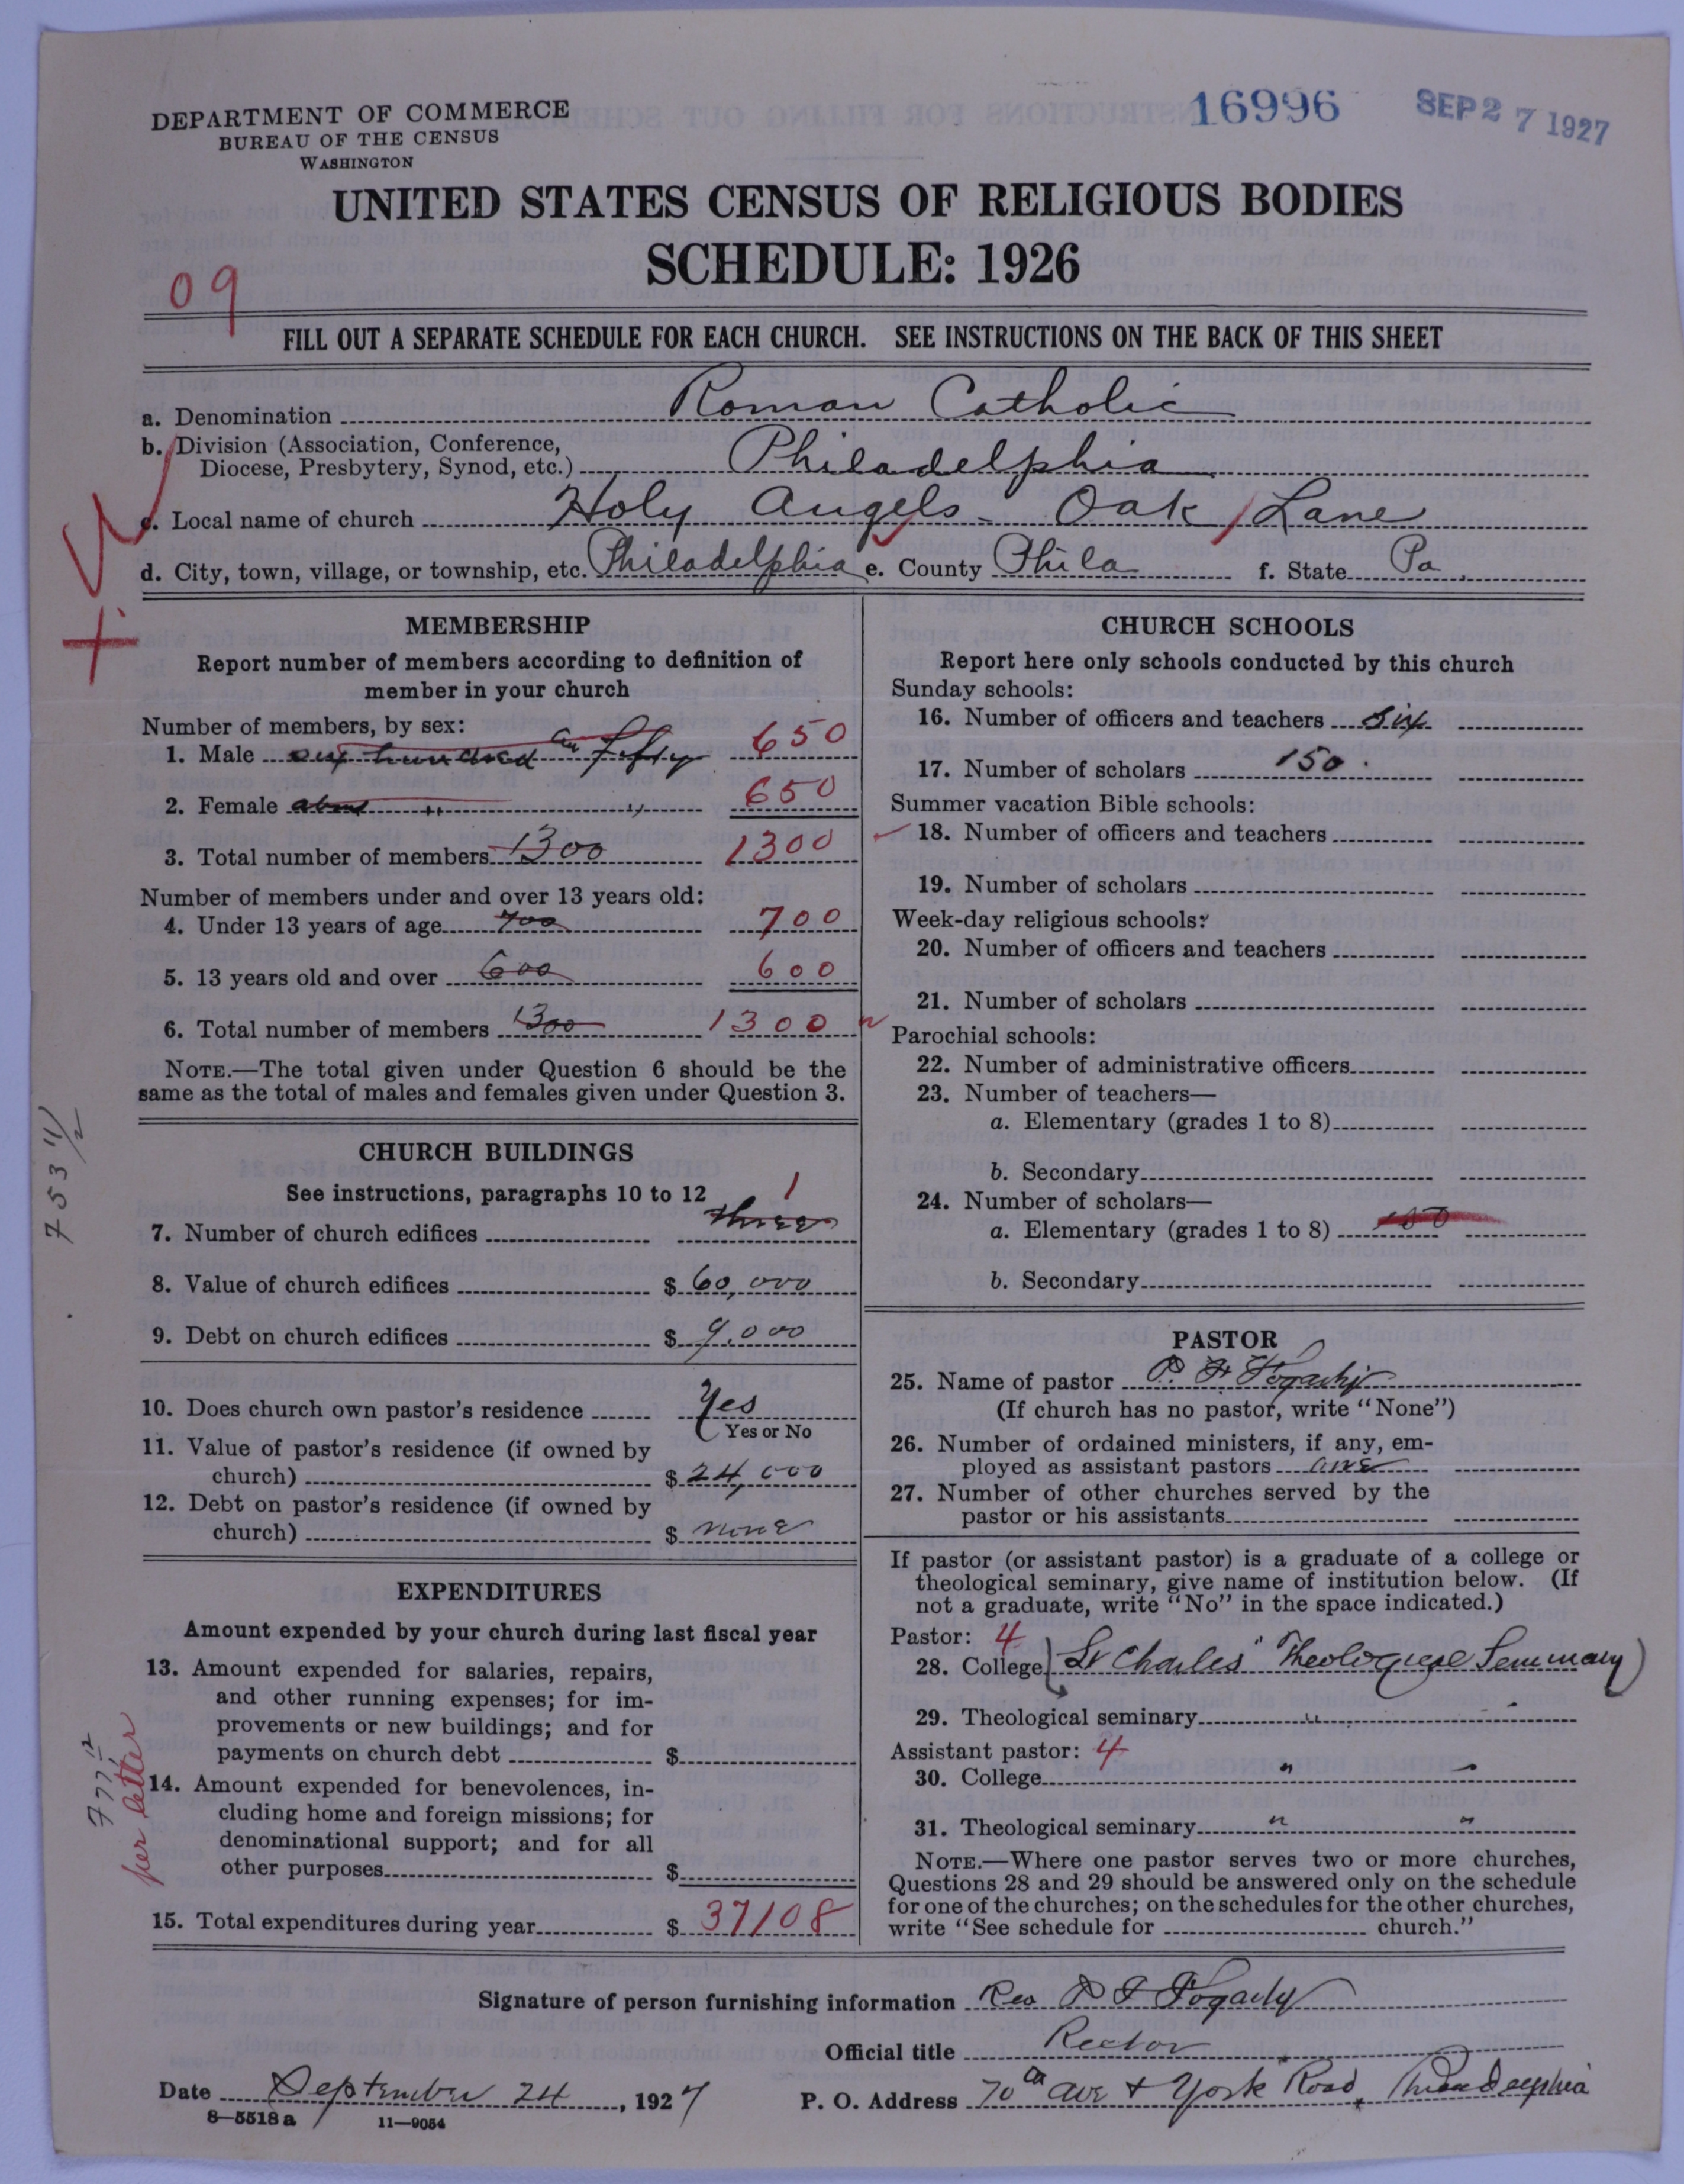 DEPARTMENT OF COMMERCE
BUREAU OF THE CENSUS
WASHINGTON
16996
SEP 27 1927
UNITED STATES CENSUS OF RELIGIOUS BODIES
SCHEDULE: 1926
09
FILL OUT A SEPARATE SCHEDULE FOR EACH CHURCH. SEE INSTRUCTIONS ON THE BACK OF THIS SHEET
a. Denomination Roman Catholic
b. Division (Association, Conference,
Diocese, Presbytery, Synod, etc.) Philadelphia
c. Local name of church Holy Angels - Oak Lane
d. City, town, village, or township, etc. Philadelphia e. County Phila f. State Pa.
MEMBERSHIP
Report number of members according to definition of
member in your church
Number of members, by sex:
1. Male six hundred an fifty 650
2. Female about " " 650
3. Total number of members 1300 1300
Number of members under and over 13 years old:
4. Under 13 years of age 700 700
5. 13 years old and over 600 600
6. Total number of members 1300 1300
NOTE.—The total given under Question 6 should be the
same as the total of males and females given under Question 3.
CHURCH BUILDINGS
See instructions, paragraphs 10 to 12
7. Number of church edifices three 1
8. Value of church edifices $ 60,000
9. Debt on church edifices $ 9.000
10. Does church own pastor's residence Yes
Yes or No
11. Value of pastor's residence (if owned by
church) $ 24,000
12. Debt on pastor's residence (if owned by
church) $ none
EXPENDITURES
Amount expended by your church during last fiscal year
13. Amount expended for salaries, repairs,
and other running expenses; for im-
provements or new buildings; and for
payments on church debt $
14. Amount expended for benevolences, in-
cluding home and foreign missions; for
denominational support; and for all
other purposes $
15. Total expenditures during year $ 37108
per letter
CHURCH SCHOOLS
Report here only schools conducted by this church
Sunday schools:
16. Number of officers and teachers six
17. Number of scholars 150.
Summer vacation Bible schools:
18. Number of officers and teachers
19. Number of scholars
Week-day religious schools:
20. Number of officers and teachers
21. Number of scholars
Parochial schools:
22. Number of administrative officers
23. Number of teachers—
a. Elementary (grades 1 to 8)
b. Secondary
24. Number of scholars—
a. Elementary (grades 1 to 8) 150
b. Secondary
PASTOR
25. Name of pastor P. F. Fogarty
(If church has no pastor, write "None")
26. Number of ordained ministers, if any, em-
ployed as assistant pastors one
27. Number of other churches served by the
pastor or his assistants
If pastor (or assistant pastor) is a graduate of a college or
theological seminary, give name of institution below. (If
not a graduate, write "No" in the space indicated.)
Pastor: 4
28. College St Charles Theological Seminary
29. Theological seminary "
Assistant pastor: 4
30. College "
31. Theological seminary " "
NOTE.—Where one pastor serves two or more churches,
Questions 28 and 29 should be answered only on the schedule
for one of the churches; on the schedules for the other churches,
write "See schedule for church."
Signature of person furnishing information Rev P F Fogarty
Official title Rector
Date September 24, 1927 P. O. Address 70th ave & York Road, Philadelphia
8—5518 a 11—9054